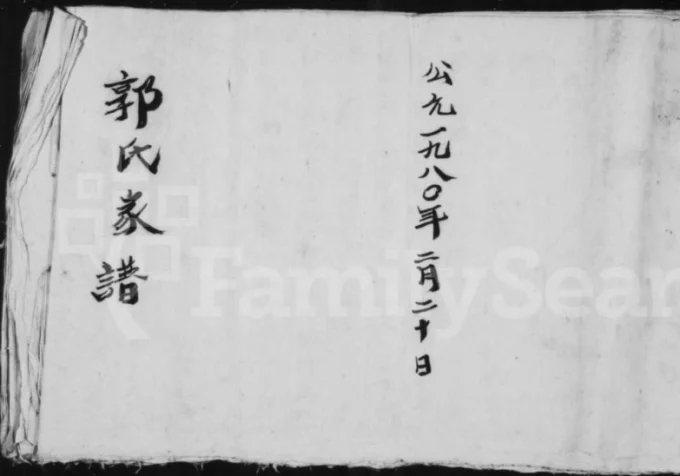 公元一九八〇年二月二十日
郭氏家譜
FamilySear